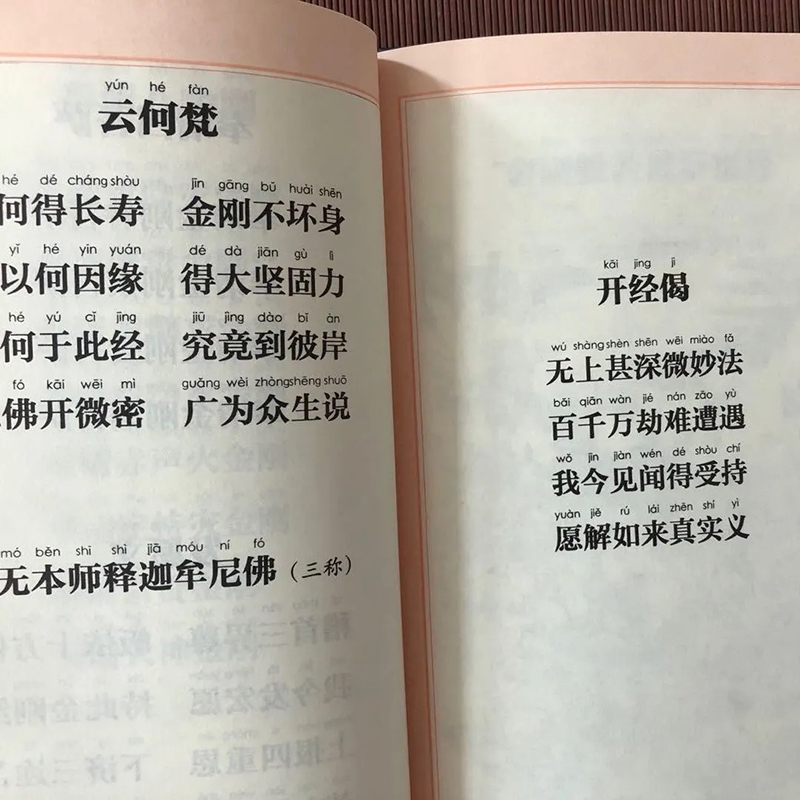 yún hé fàn
云何梵
hé dé cháng shòu jīn gāng bǔ huài shēn
何得长寿 金刚不坏身
yǐ hé yīn yuán dé dà jiān gù lì
以何因缘 得大坚固力
hé yú cǐ jīng jiū jìng dào bǐ àn
何于此经 究竟到彼岸
fó kāi wēi mì guǎng wèi zhòng shēng shuō
佛开微密 广为众生说
mó běn shī shì jiā móu ní fó
无本师释迦牟尼佛（三称）
kāi jīng jì
开经偈
wú shàng shèn shēn wēi miào fǎ
无上甚深微妙法
bǎi qiān wàn jié nán zāo yù
百千万劫难遭遇
wǒ jīn jiàn wén dé shòu chí
我今见闻得受持
yuàn jiě rú lái zhēn shí yì
愿解如来真实义